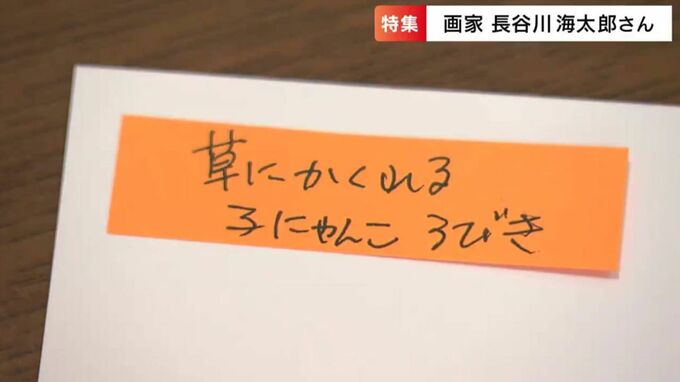 特集 画家 長谷川 海太郎さん
草にかくれる
子にゃんこ 3びき